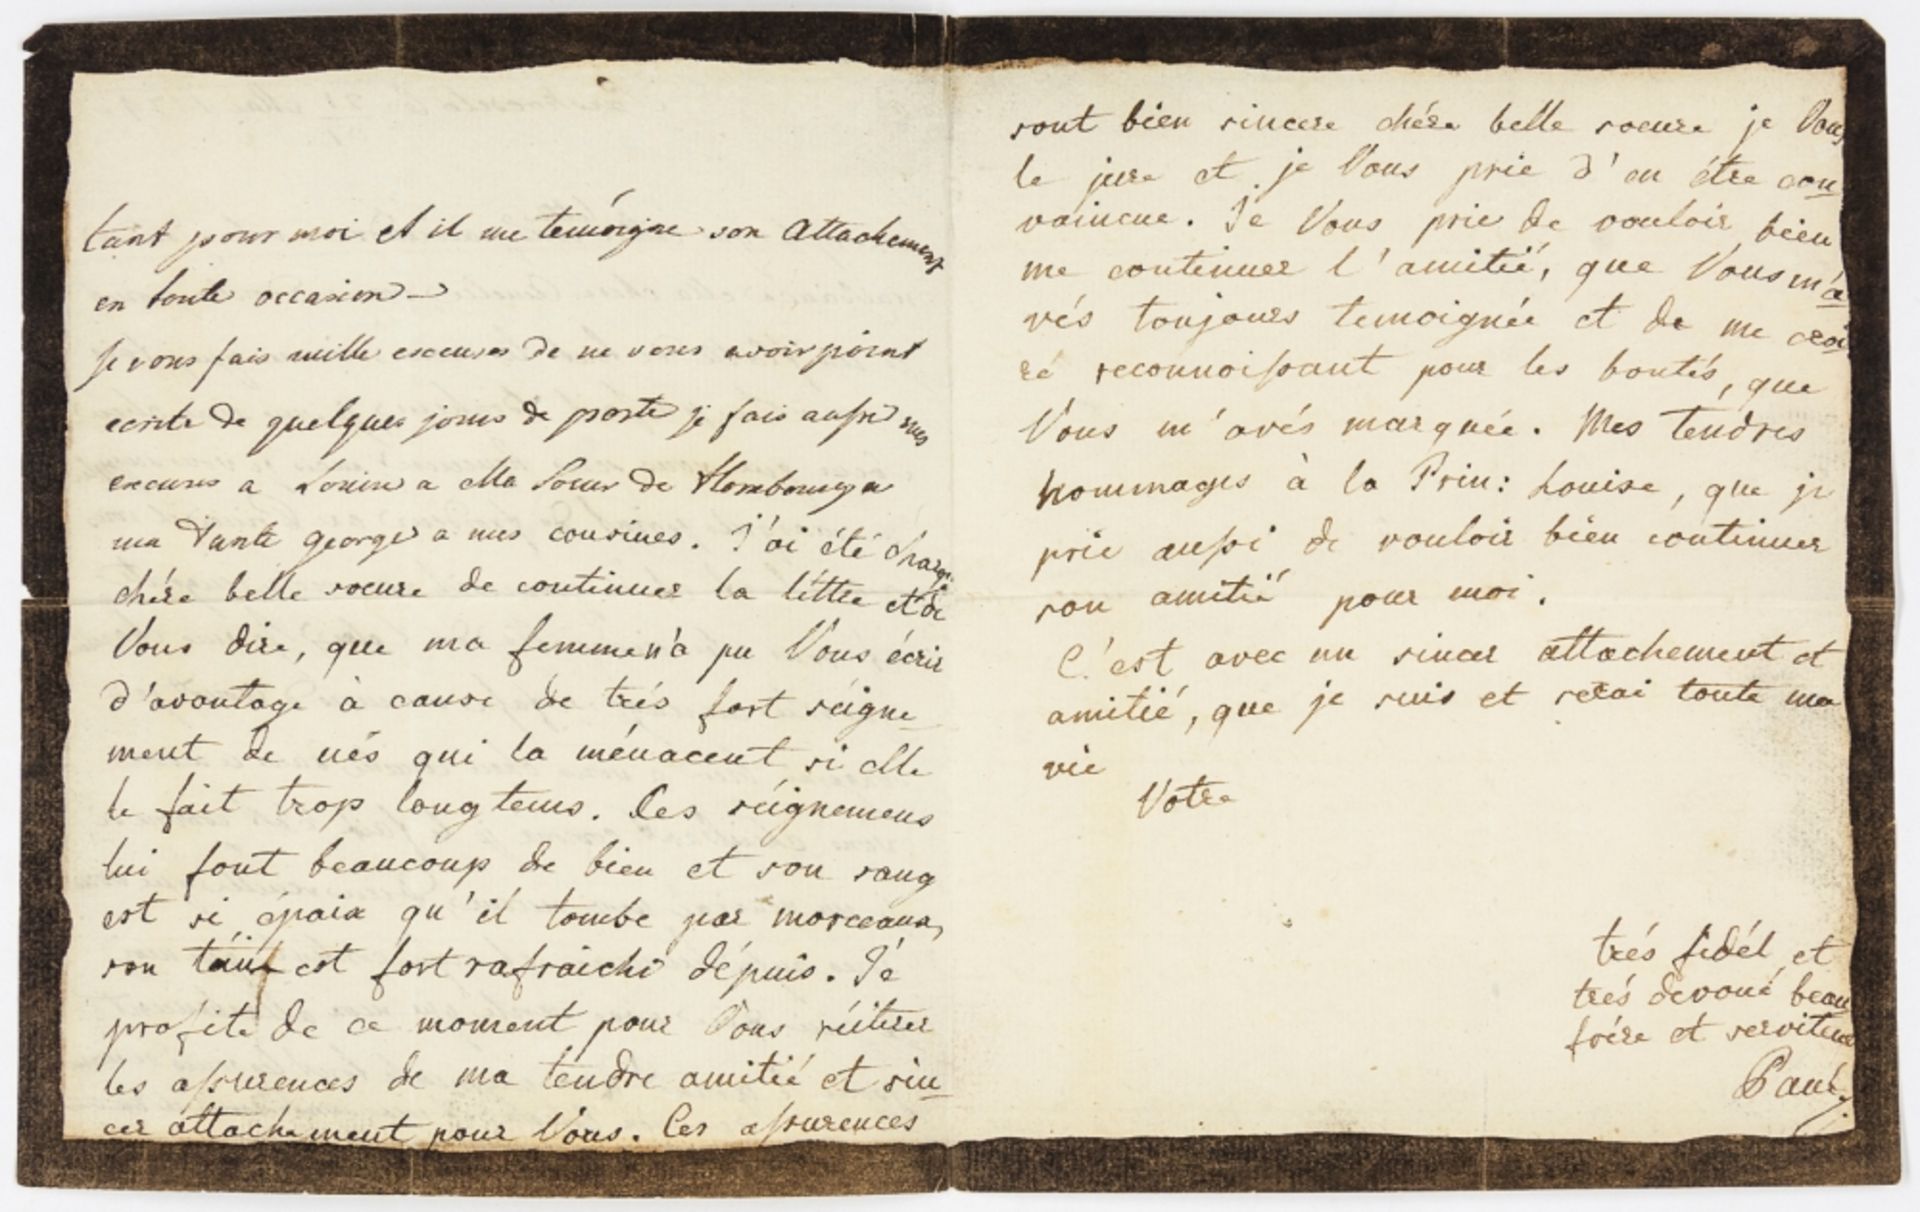 tant pour moi et il me temoigne son Attachement
en toute occasion —
Je vous fais mille excuses de ne vous avoir point
ecrite de quelques jours de poste je fais aussi mes
excuses a Louise a Ma Soeur de Hombourg a
ma Tante george a mes cousines. J'ai été chargé
chére belle soeure de continuer la léttre et de
Vous dire, que ma femme n'a pu Vous écrir
d'avantage à cause de trés fort séigne
ment de nés qui la ménacent si elle
le fait trop longtems. Ces séignemens
lui font beaucoup de bien et son sang
est si épaix qu'il tombe par morceaux,
son táint est fort rafraichi dépuis. Jé
profite de ce moment pour Vous réitirer
les assurences de ma tendre amitié et sin
cer attachement pour Vous. Ces assurences
sont bien sincere chére belle soeure je Vous
le jure et je Vous prie d'en étre con
vaincue. Je Vous prie de vouloir bien
me continuer l'amitié, que Vous m'a
vés toujours temoignée et de me croi
ré reconnoissant pour les bontés, que
Vous m'avés marquée. Mes tendres
hommages à la Prin: Louise, que je
prie aussi de vouloir bien continuer
son amitié pour moi.
C'est avec un sincer attachement et
amitié, que je suis et serai toute ma
vie
Votre
trés fidél et
trés devoué beau
frére et serviteur
Paul.